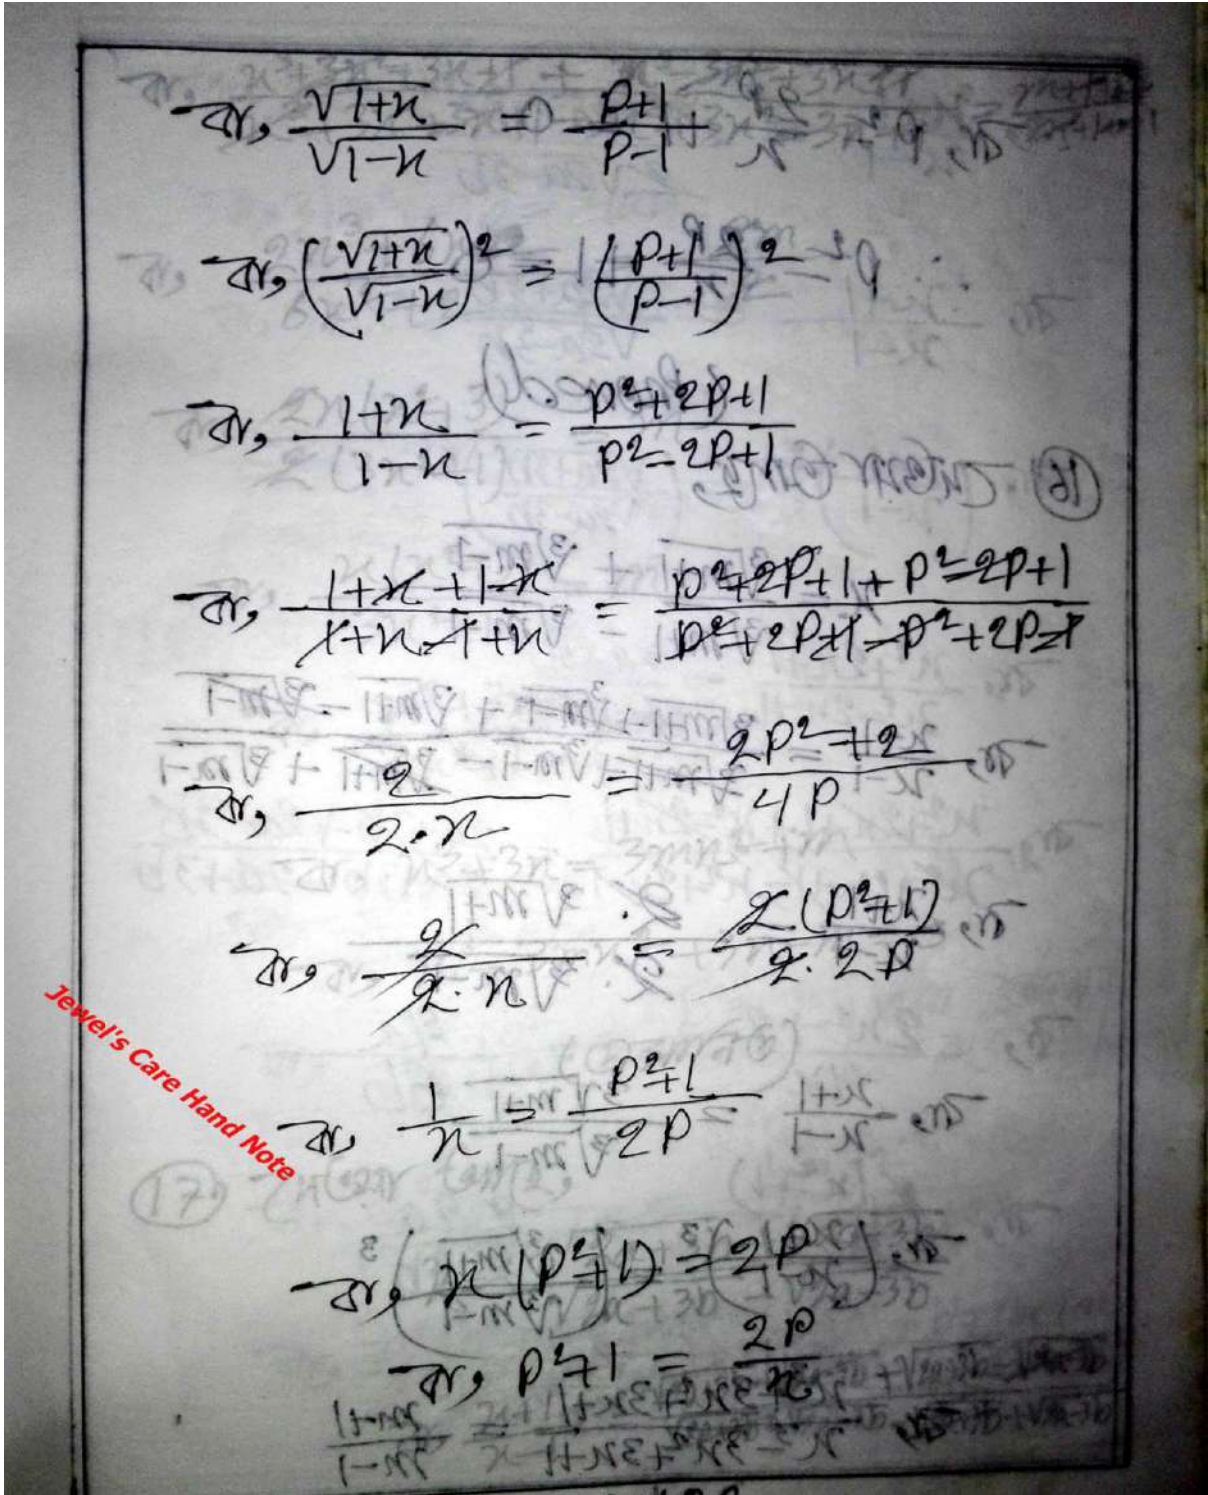 বা, √(1+x)/√(1-x) = (P+1)/(P-1)
বা, (√(1+x)/√(1-x))² = ((P+1)/(P-1))²
বা, (1+x)/(1-x) = (P²+2P+1)/(P²-2P+1)
বা, (1+x+1-x)/(1+x-1+x) = (P²+2P+1+P²-2P+1)/(P²+2P+1-P²+2P-1)
বা, 2/(2·x) = (2P²+2)/(4P)
বা, 2/(2·x) = 2(P²+1)/(2·2P)
বা, 1/x = (P²+1)/(2P)
বা, x(P²+1) = 2P
বা, P²+1 = 2P/x
Jewel's Care Hand Note